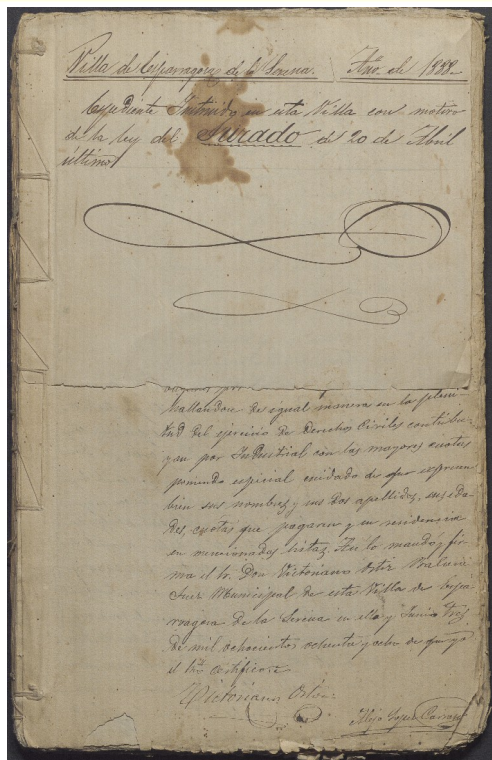 Villa de Esparragosa de la Serena. Año de 1888.
Expediente Instruido en esta Villa con motivo
de la ley del Jurado de 20 de Abril
último
hallandose de igual manera en la pleni-
tud del ejercicio de Derechos Civiles contribu-
yan por Industrial con las mayores cuotas
poniendo especial cuidado de que espresen
bien sus nombres y sus dos apellidos, sus eda-
des, cuotas que pagaren y su residencia
en mencionadas listas. Asi lo mando y fir-
ma el Sr. Don Victoriano Ortiz
Juez Municipal de esta Villa de Espa-
rragosa de la Serena en ella y Junio tres
de mil ochocientos ochenta y ocho de que yo
el Srio certifico =
Victoriano Ortiz